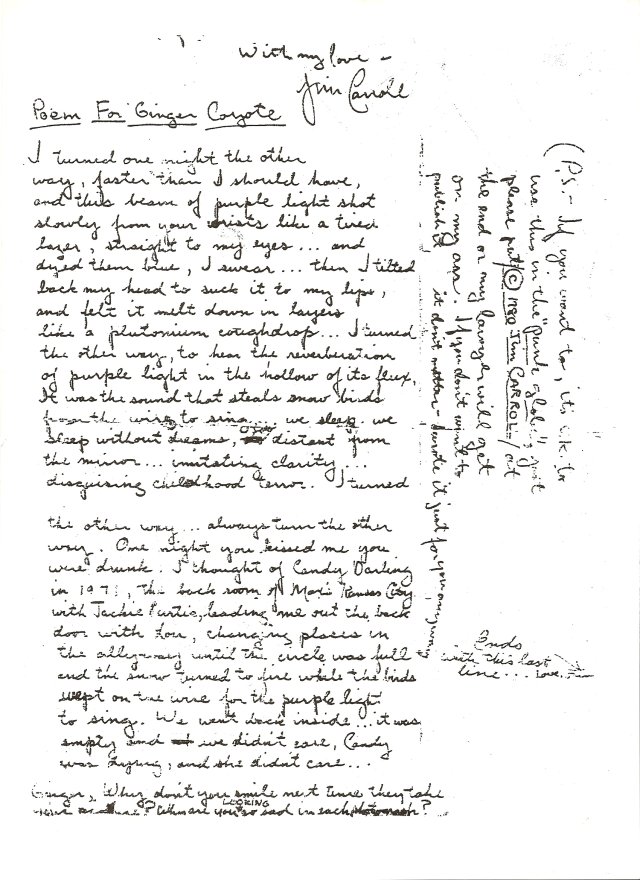 With my love –
Jim Carroll
Poem For Ginger Coyote
I turned one night the other
way, faster than I should have,
and this beam of purple light shot
slowly from your wrists like a tired
lazer, straight to my eyes... and
dyed them blue, I swear... then I tilted
back my head to suck it to my lips,
and felt it melt down in layers
like a plutonium coughdrop... I turned
the other way, to hear the reverberation
of purple light in the hollow of its flux,
It was the sound that steals snow birds
from the wire to sing we sleep we
sleep without dreams, distant from
the mirror... imitating clarity...
disguising childhood terror. I turned
the other way... always turn the other
way. One night you kissed me you
were drunk. I thought of Candy Darling
in 1971, the back room of Max's Kansas City
with Jackie Curtis, leading me out the back
door with Lou, changing places in
the alleyway until the circle was full
and the snow turned to fire while the birds
wept on the wire for the purple light
to sing. We went back inside... it was
empty and we didn't care, Candy
was dying, and she didn't care...
Ginger, Why don't you smile next time they take
your picture? Why are you LOOKING so sad in each
Ends
with this last
line... Love, Jim
(P.S. – If you want to, it's ok to
use this in the "Punk Globe", just
please put © 1980 Jim CARROLL at
the end or my lawyer will get
on my ass. If you don't want to
publish it it don't matter – I wrote it just for you, anyway